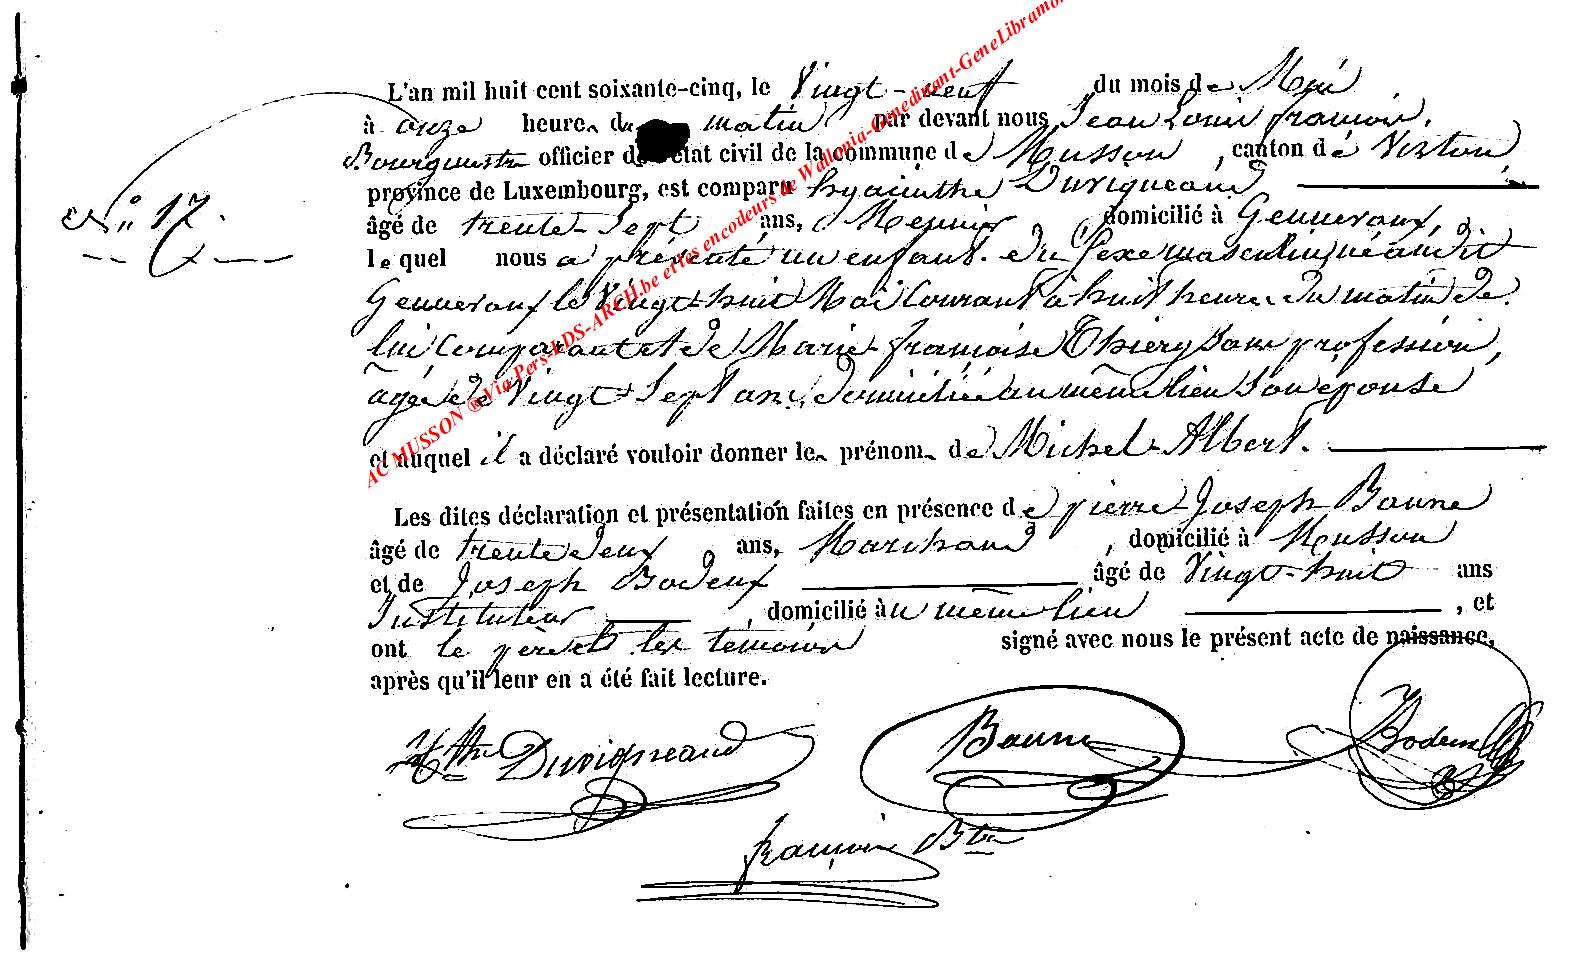 L'an mil huit cent soixante-cinq, le Vingt-neuf du mois de Mai
à onze heures du matin par devant nous Jean Louis françois,
Bourgmestre officier de l'état civil de la commune de Musson, canton de Virton,
province de Luxembourg, est comparu hyacinthe Duvigneaud
N° 17.
âgé de trente-Sept ans, Meunier domicilié à Gennevaux,
lequel nous a présenté un enfant du Sexe masculin, né au dit
Gennevaux le Vingt-huit Mai Courant à huit heures du matin de
lui Comparant et de Marie-françoise Thiery Sans profession,
âgée de Vingt-Sept ans, domiciliée au même lieu Son épouse
et auquel il a déclaré vouloir donner les prénoms de Michel-Albert.
Les dites déclaration et présentation faites en présence de pierre-Joseph Baune
âgé de trente deux ans, Marchand, domicilié à Musson
et de Joseph Bodeux âgé de Vingt-huit ans
Instituteur, domicilié au même lieu, et
ont le père et les témoins signé avec nous le présent acte de naissance,
après qu'il leur en a été fait lecture.
Hthe Duvigneaud Baune Bodeux
françois Btre
AC MUSSON ® Via Pers-BDS-ARCH.be et les encodeurs de Wallonia-Genedinant-GeneLibramo